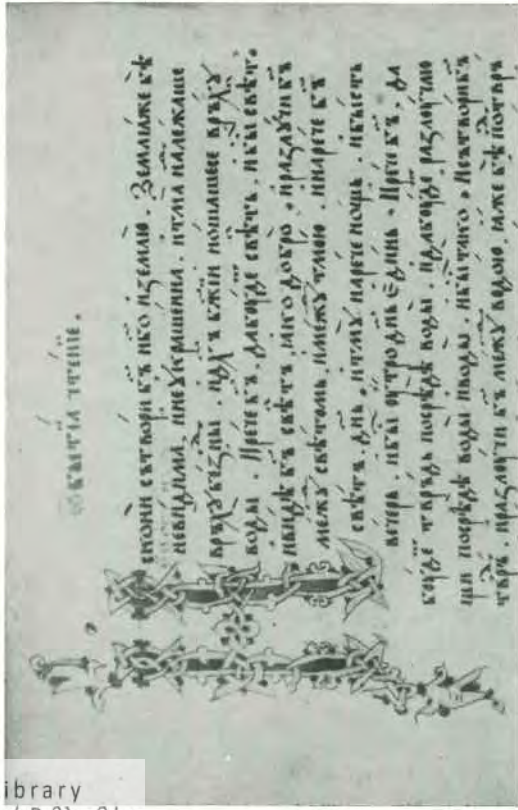 ѿ бытїа чтенїе.
скони сътвори бъ нбо и землю. Землѧже бѣ
невидима, и неѹкрашенна. и тма належаше
врьхѹ безны. и дхъ бжїи ношашесе врьхѹ
воды. И рече бъ. да бѹде свѣть. и бы свѣть.
и видѣ бъ свѣть, ꙗко добро. и разлѹчи бъ
межѹ свѣтомь, и межѹ тмою. и нарече бъ
свѣть днь, и тмѹ нарече нощь. и бысть
вечерь. и бы ѹтро днь единь. И рече бъ. да
бѹде тврьдь посрѣдѣ воды. и да бѹде разлѹчаю
щи посрѣдѣ воды и воды. и бы тако. И сътвори бъ
тврь. и разлѹчи бъ межѹ водою, ꙗже бѣ по тврь
ibrary